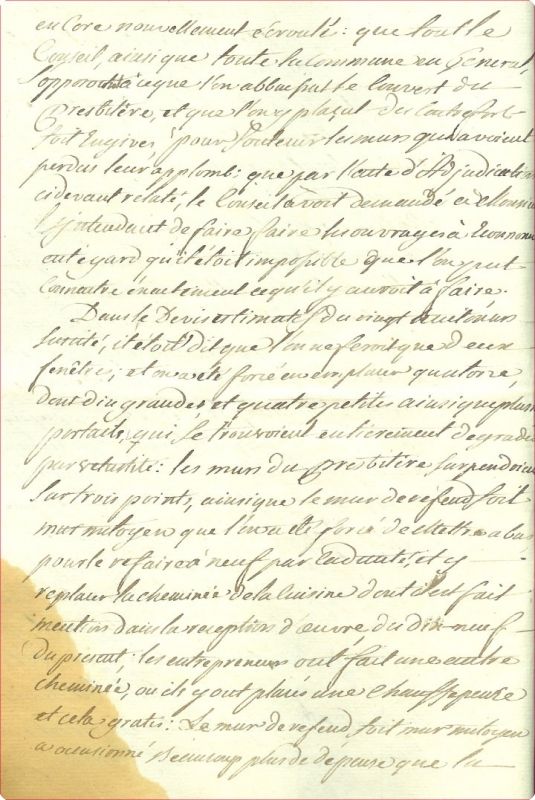 encore nouvellement écroulé: que tout le
Conseil, ainsique toute la Commune en General,
opposoit à ceque l'on abbaissat le Couvert du
Presbitère, et que l'on y plaçat des Contrefort
soit Engives pour soutenir les murs qui avoient
perdus leur applomb: que par l'acte d'Adjudication
cidevant relaté, le Conseil avoit demandé à Monsieur
l'Intendant de faire faire les ouvrages à Economie
eut egard qu'il étoit impossible que l'on put
Connaitre exactement ce qu'il y auroit à faire.
Dans le Devis estimatif du vingt
suscité, il étoit dit que l'on ne feroit que deux
fenêtres; et on a été forcé en emplacer quatorze,
dont dix grandes et quatre petites ainsique plusieurs
portaits, qui se trouvoient entierement degradés
par vetusité: les murs du Presbitère
sur trois point, ainsique le mur de refend soit
mur mitoyen que l'on a été forcé de mettre a bas
pour le refaire à neuf par et y
replacer la cheminée de la Cuisine dont c'est fait
mention dans la reception d'œuvre du dix neuf
du present: les entrepreneurs ont fait une autre
cheminée, ou ils y ont placés une Chauffepense
et cela gratis: Le mur de refend, soit mur mitoyen
a occasionné Beaucoup plus de dépense que la